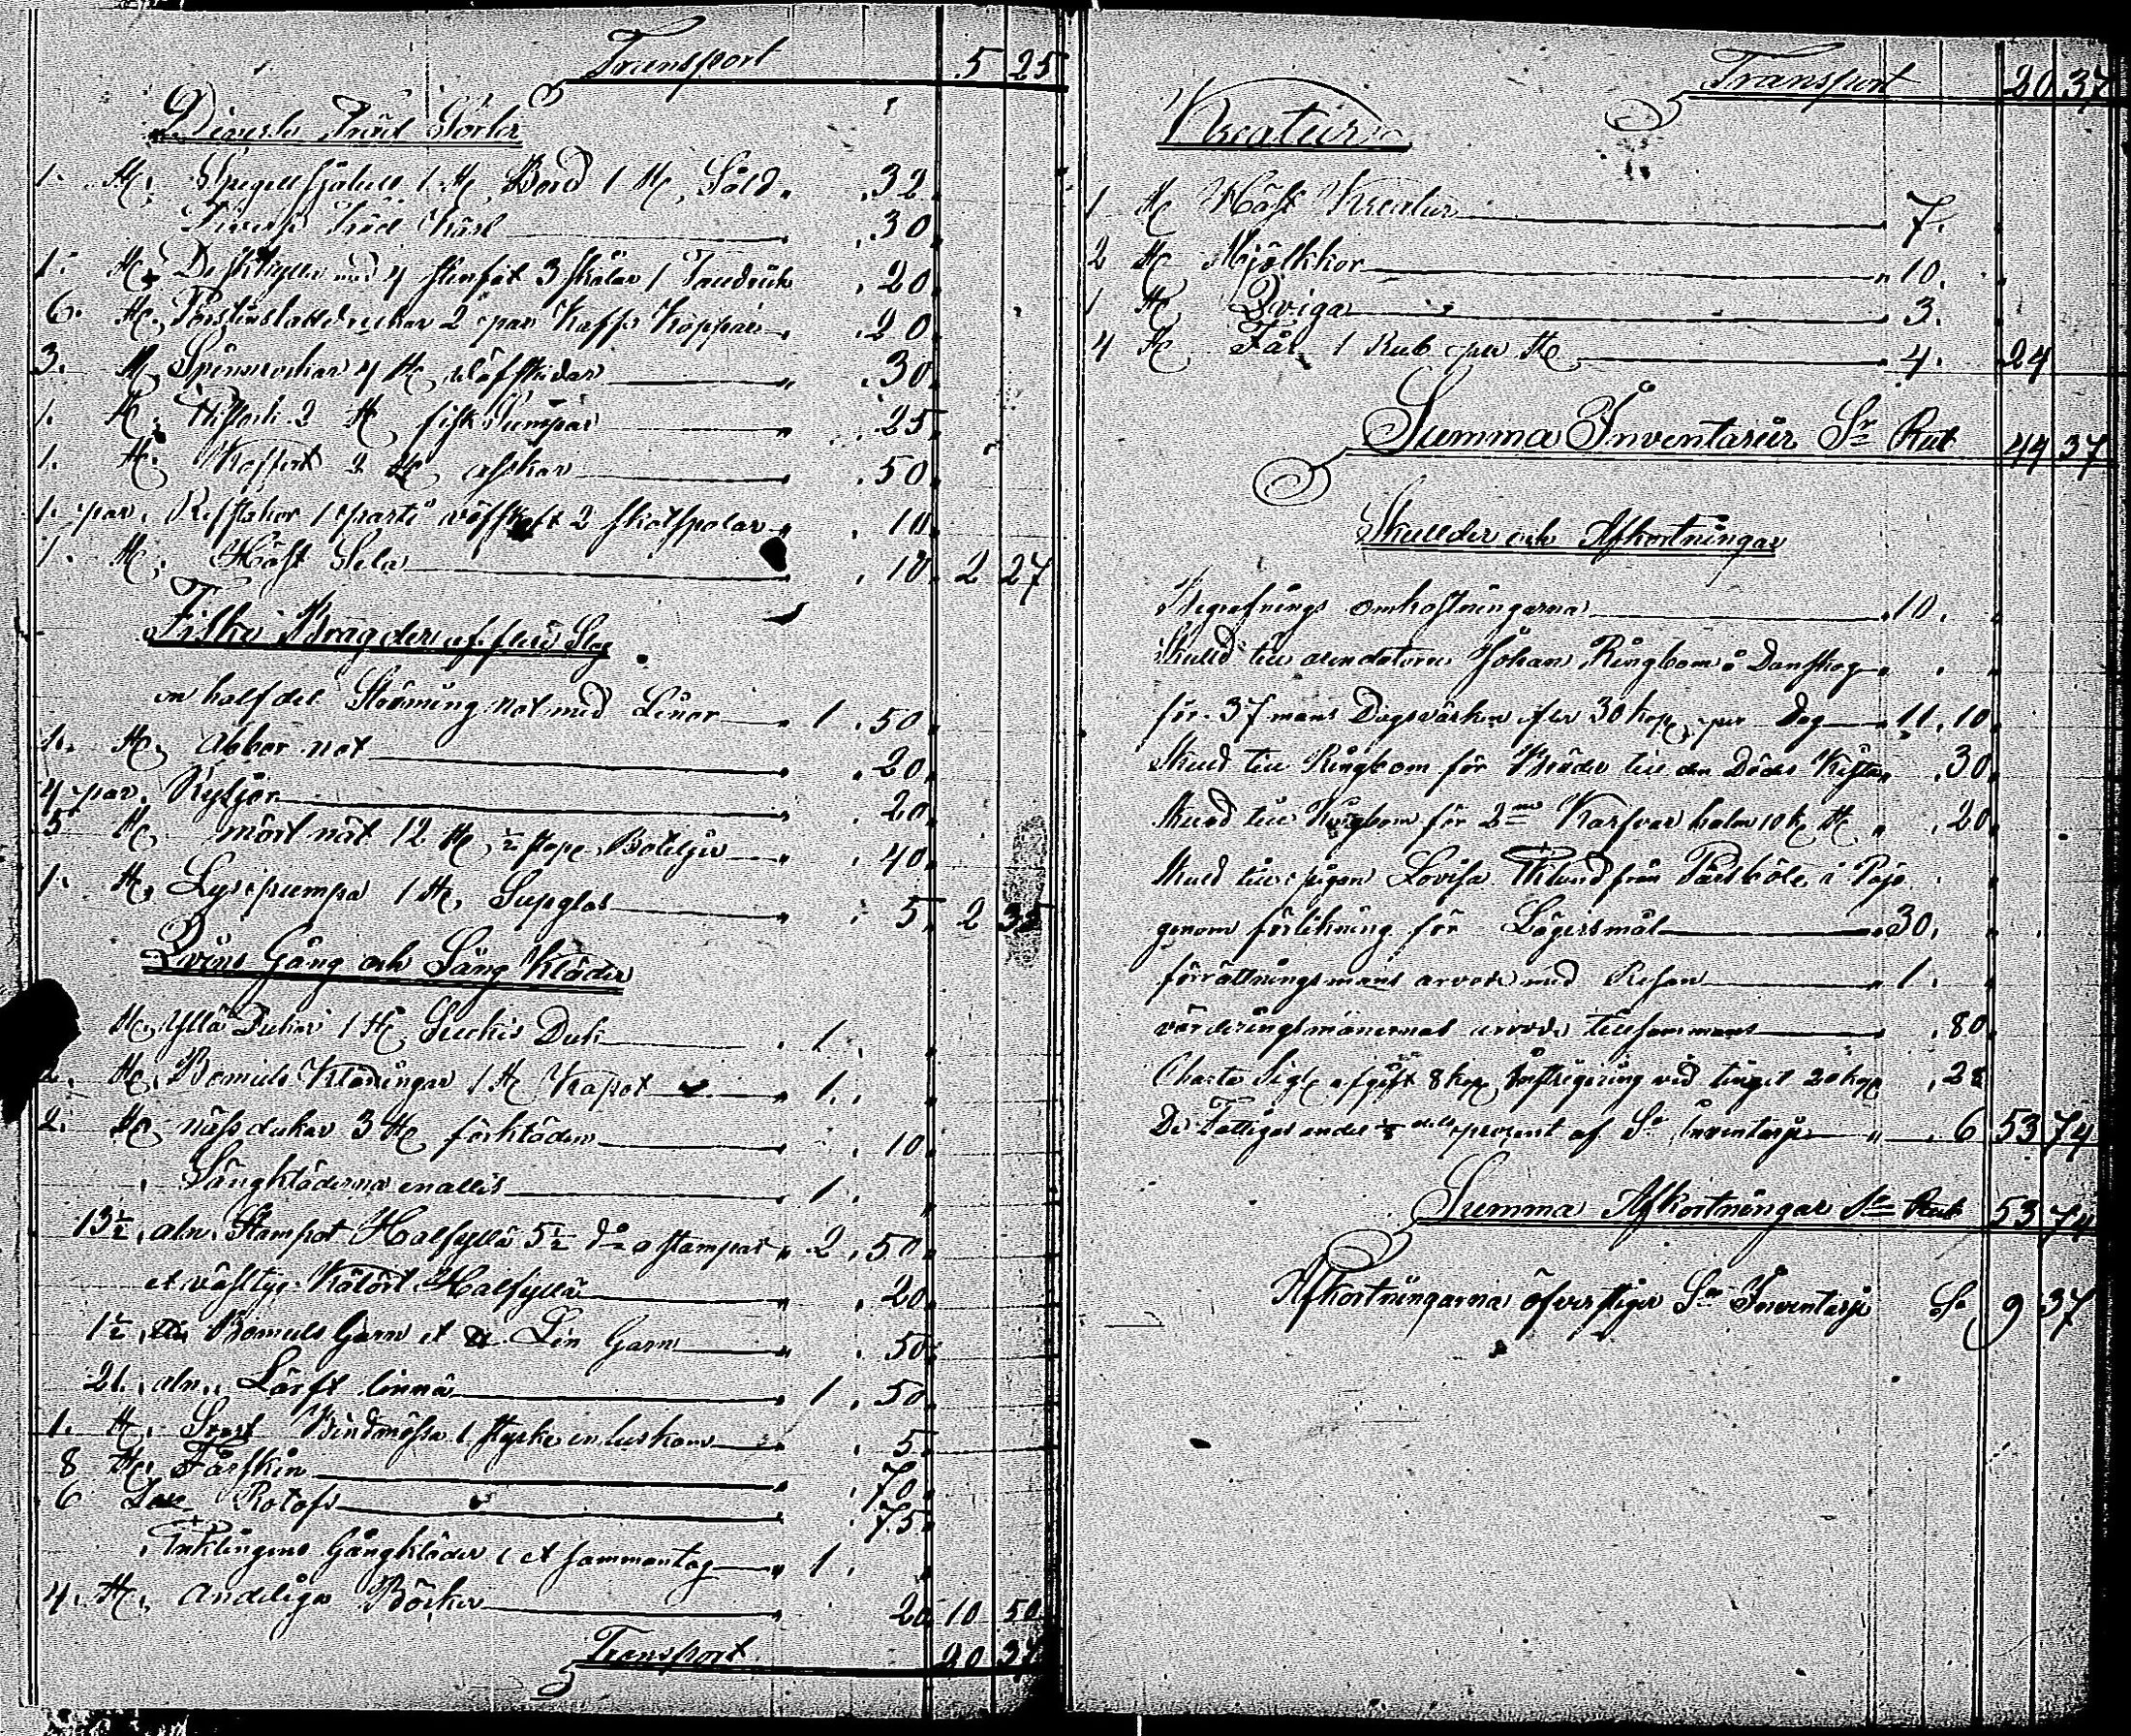 Transport 5 25
Diverse Träd Sorter
1. St. Spegell 1 St. Bord 1 St. Såld .32
Diverse Träd Kärl .30
1. St. med 4 stenfat 3 skålar 1 .20
6. St. 2 par Kaffe Koppar .20
3. St. Spinnrockar 4 St. .30
1. St. 2 St. fisk Sumpar .25
1. St. Koffert 2 St. askar .50
1. par. 1 parti 2 .10
1. St. Häst Sela .10 2 27
Fiske Bragder af flere Slag
en half del Strömming not med Linor 1 .50
1. St. Abbor not .20
4 par. Rysjor .20
5 St. mört nät 12 St. ½ stops Boteljer .40
1. St. 1 St. Supglas . 5 2 35
Qvins Gång och Säng Kläder
St. Ylle Dukar 1 St. Duk 1.
2. St. Bomuls Kläningar 1 St. Kapot 1.
2. St. näsdukar 3 St. förkläden .10
Sängkläderna en allt 1.
13½ aln. Stampat Halfylle 5½ d:o ostampat 2 .50
et Halfylle .20
1½ Bomuls Garn et Lin Garn .50
21. aln. Lärft linne 1 .50
1. St. Svart Bindmössa 1 stycke . 5
8 St. Fårskin .70
6 .75
Änklingens Gångkläder i et sammantag 1.
4. St. Andeliga Böcker 20 10 50
Transport 20 37
Transport 20 37
Kreatur
1 St. Häst Kreatur 7.
2 St. Mjölkkor 10.
1 St. Qviga 3.
4 St. Får 1 Rub. per St. 4. 24
Summa Inventarier Sr Rub 44 37
Skullder och Afkortningar
Begrafnings omkostningarna 10.
Skuld till arendatorn Johan Ringbom å Danskog
för 37 mans Dagsvärken efter 30 kop. per Dag 11.10
Skuld till Ringbom för Bräder till den Dödes Kista .30
Skuld till Ringbom för 2 Karfvar halm 10 k. St. .20
Skuld till pigan Lovisa från i Pojo
genom förlikning för Lägersmål 30.
förrättningsmans arvode med Resan 1.
värderingsmänernas arvode tillsammans .80
Charta Sigl. afgift 8 kop. vid tinget 20 kop .28
De Fattigas andel ⅛ dels procent af Sr Inventarie . 6 53 74
Summa Afkortningar Sr Rub 53 74
Afkortningarna öfverstiger Sr Inventarie Sr 9 37